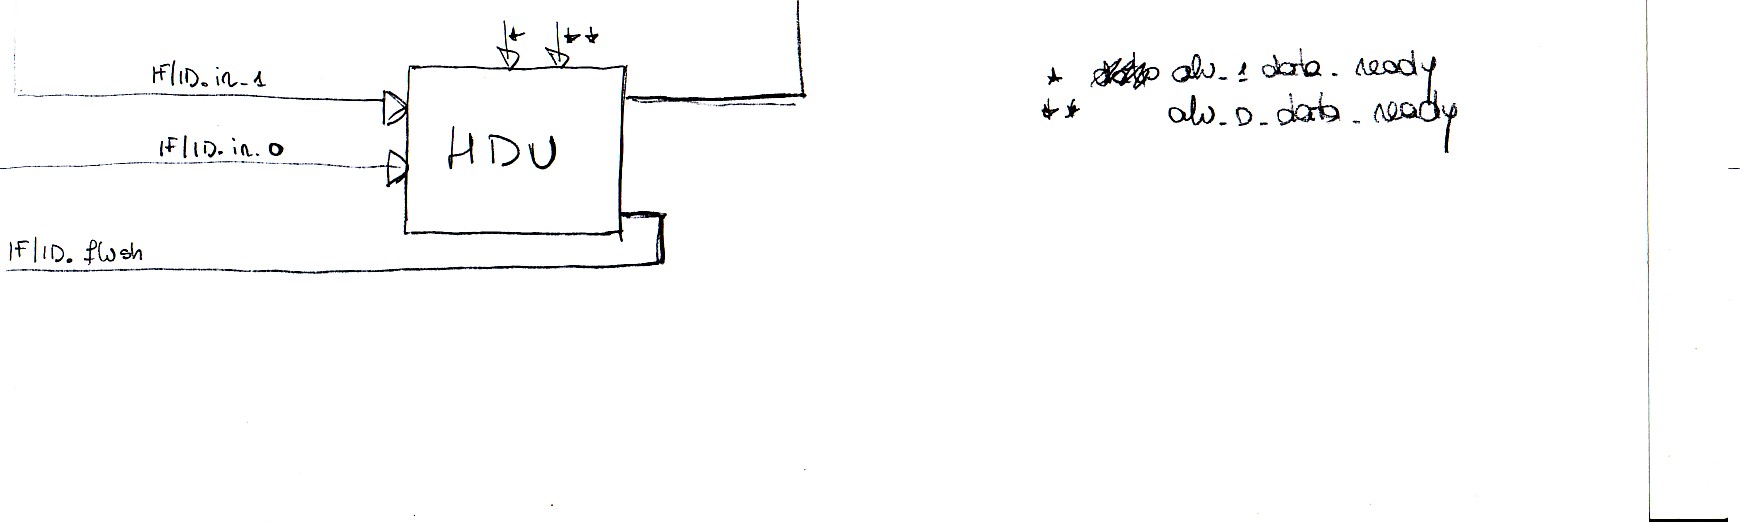 * **
IF/ID.in_1
IF/ID.in.0
HDU
IF/ID.flush
* alu_1 data. ready
** alu_0_data_ready